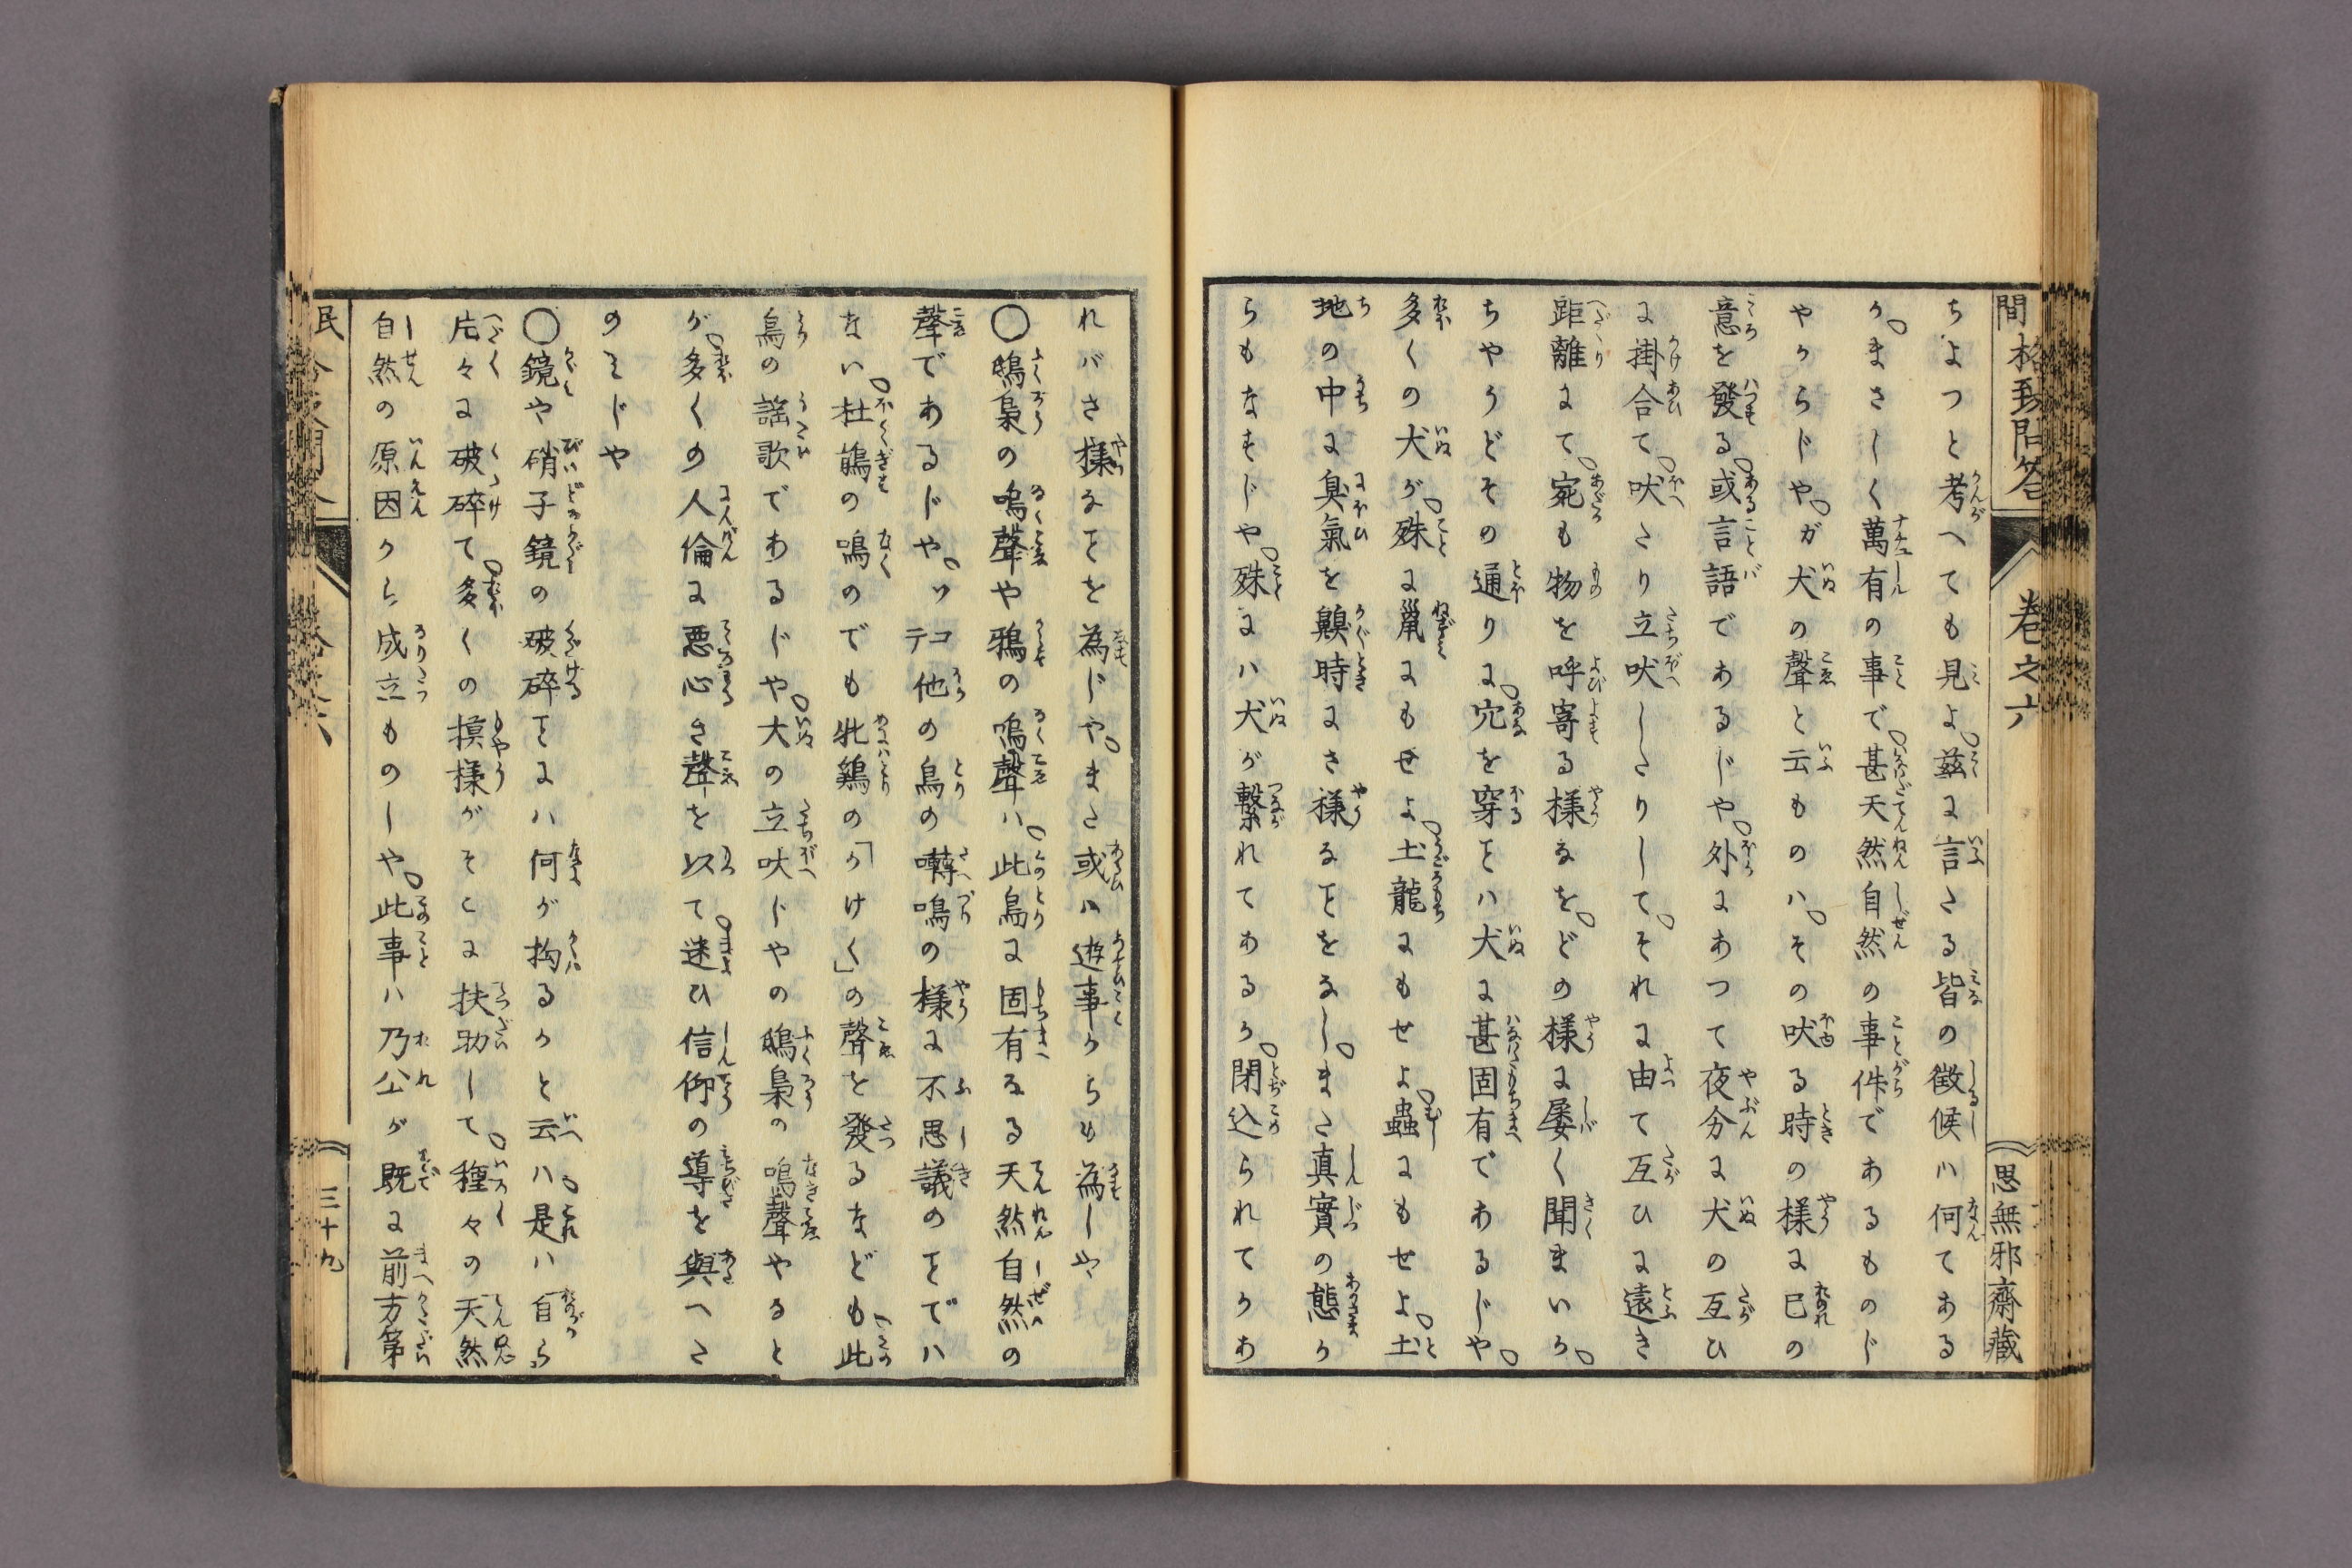 民間格致問答 巻之六 思無邪齋藏
ちよつと考へても見よ。茲に言たる皆の徴候ハ何てある
か。まさしく萬有の事で。甚天然自然の事件であるものじ
やからじや。ガ犬の聲と云ものハ。その吠る時の様に已の
意を發る。或言語であるじや。外にあつて夜分に犬の互ひ
に掛合て。吠たり立吠したりして。それに由て互ひに遠き
距離にて。宛も物を呼寄る様なを。どの様に屡く聞まいか。
ちやうどその通りに。穴を穿ヿハ犬に甚固有であるじや。
多くの犬が。殊に鼠にもせよ。土龍にもせよ。蟲にもせよ。土
地の中に臭氣を齅時にさ様なヿをなし。また真實の態か
らもなすじや。殊にハ犬が繋れてあるか。閉込られてかあ
れバさ様なヿを為じや。また或ハ遊事からも為しや
〇鵂梟の鳴聲や鴉の鳴聲ハ。此鳥に固有なる天然自然の
聲であるじや。ッコテ他の鳥の囀鳴の様に不思議のヿでハ
ない。杜鵑の鳴のでも牝鶏の「かけく」の聲を發るなども此
鳥の謡歌であるじや。犬の立吠じやの鵂梟の鳴聲やると
が。多くの人倫に悪心き聲を以て。迷ひ信仰の導を與へた
のみじや
〇鏡や硝子鏡の破碎ヿにハ何が拘るかと云ハ。是ハ自ら
片々に破碎て。多くの摸様がそこに扶助して。種々の天然
自然の原因から成立ものしや。此事ハ乃公が既に前方第
民 巻之六 三十九